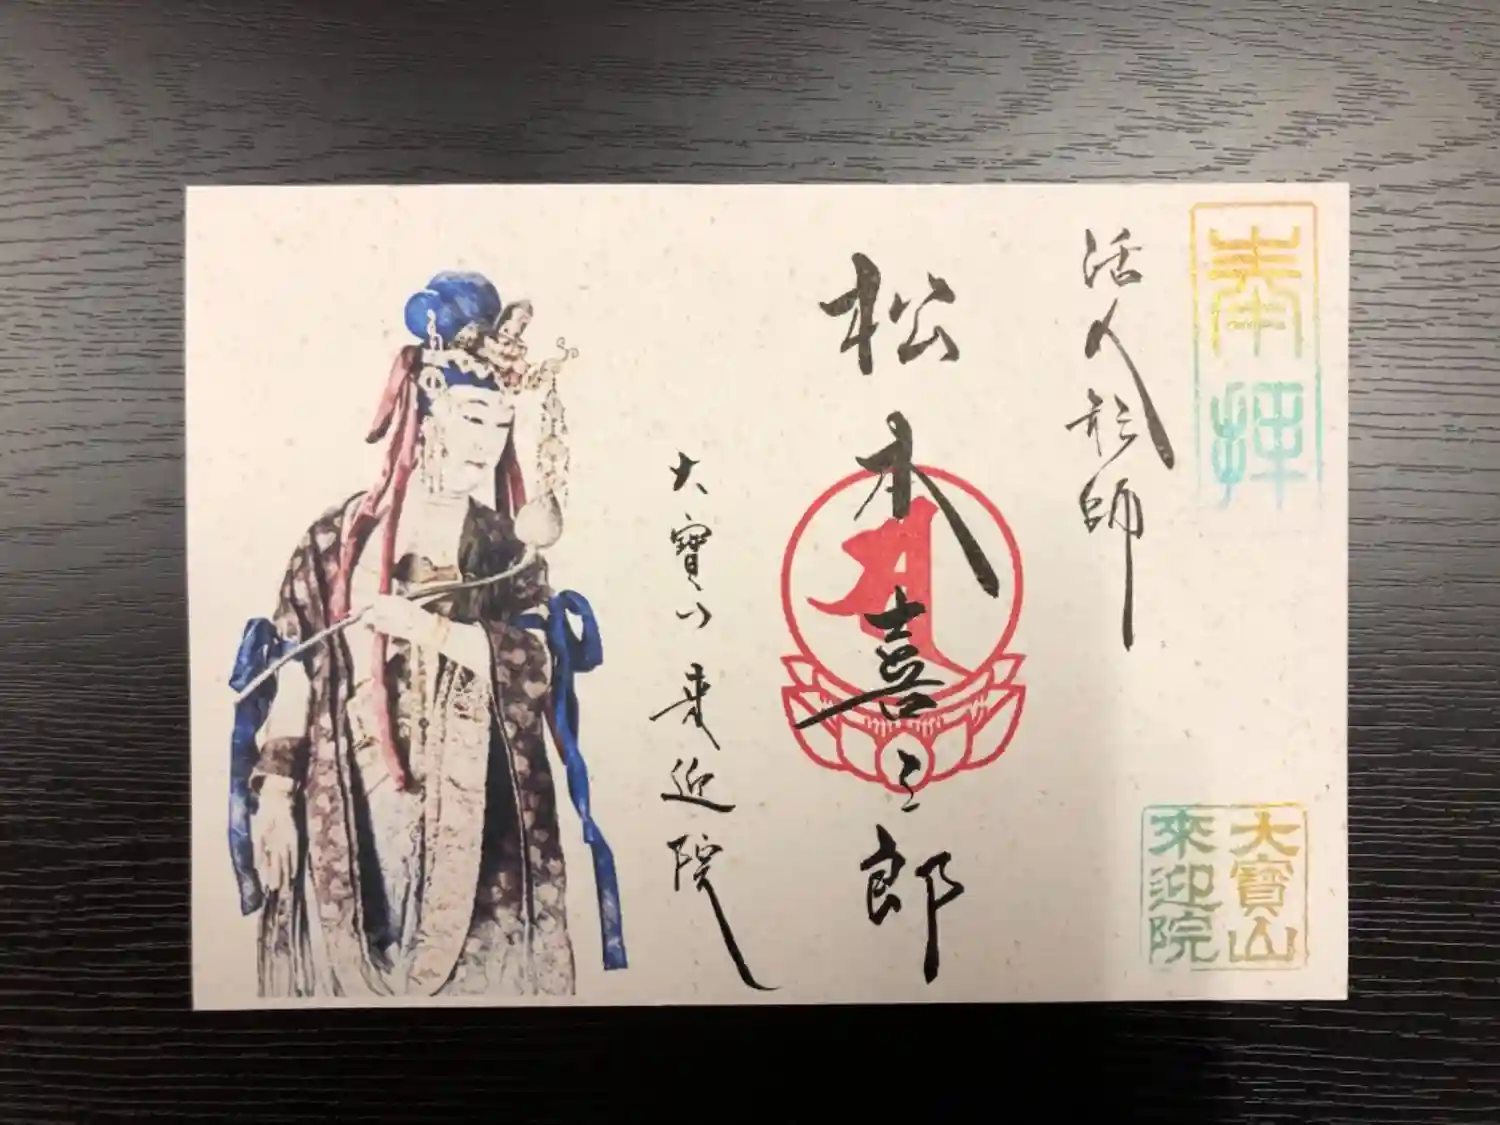 奉拝
活人形師
松本喜三郎
大寳山来迎院
大寳山
來迎院